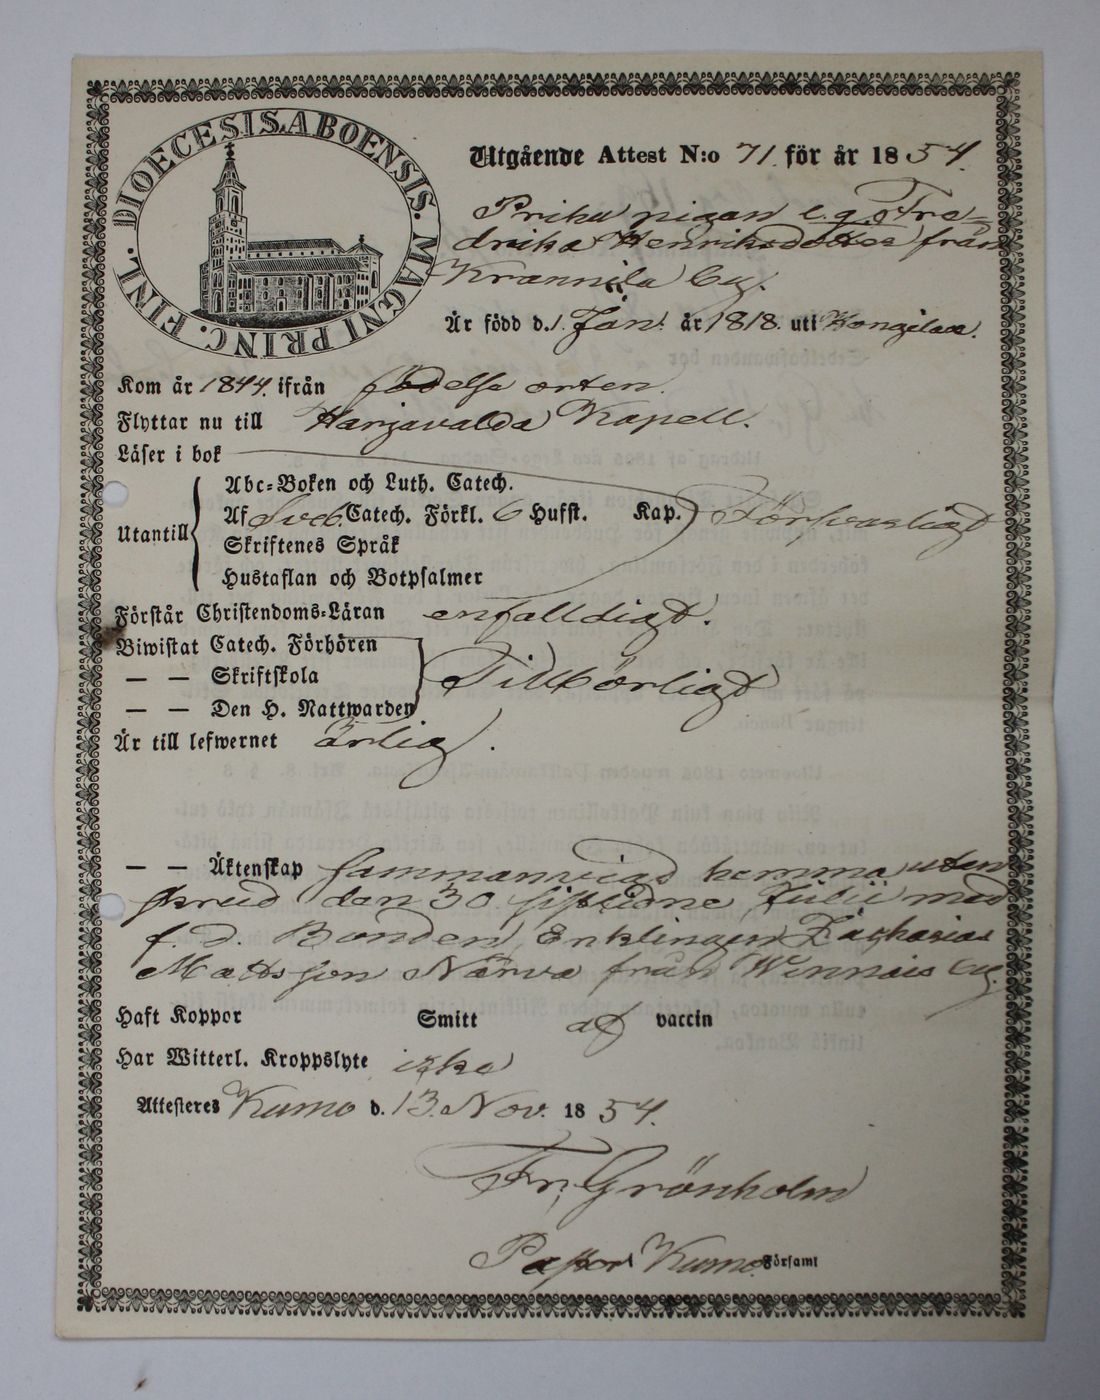 DIOECESIS ABOENSIS. MAGNI PRINC. FINL.
Utgående Attest N:o 71. för år 1854.
Pigan e.g. Fre-
drika Henriksdotter från
Krannila by.
Är född d. 1 Jan. år 1818. uti
Kom år 1844. ifrån födelse orten.
Flyttar nu till Harjavalda Kapell.
Läser i bok
Abc-Boken och Luth. Catech.
Utantill Af Sveb. Catech. Förkl. 6 Hufst. Kap. Försvarligt
Skriftenes Språk
Hustaflan och Botpsalmer
Förstår Christendoms-Läran enfalldigt.
Biwistat Catech. Förhören
— — Skriftskola Tillbörligt
— — Den H. Nattwarden
Är till lefwernet ärlig.
— — Äktenskap sammanvigd hemma utan
skrud den 30 sistlidne Julii med
f. d. Bonden, Enklingen Zacharias
Mattsson Närvä från Winnais by.
Haft Koppor Smitt af vaccin
Har Witterl. Kroppslyte icke
Attesteres Kumo d. 13. Nov. 1854.
Fr. Grönholm
Pastor Kumo Församl